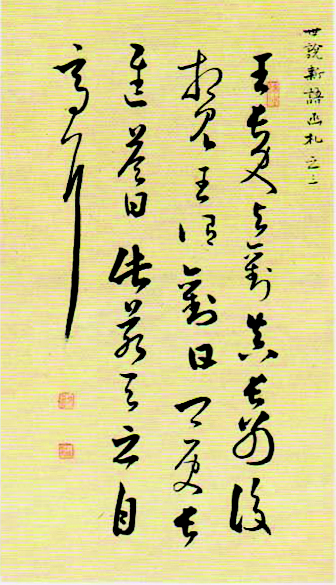 世說新語函札之三
王長史與劉真長別後
相見王謂劉曰卿更長
進答曰此若天之自
高耳